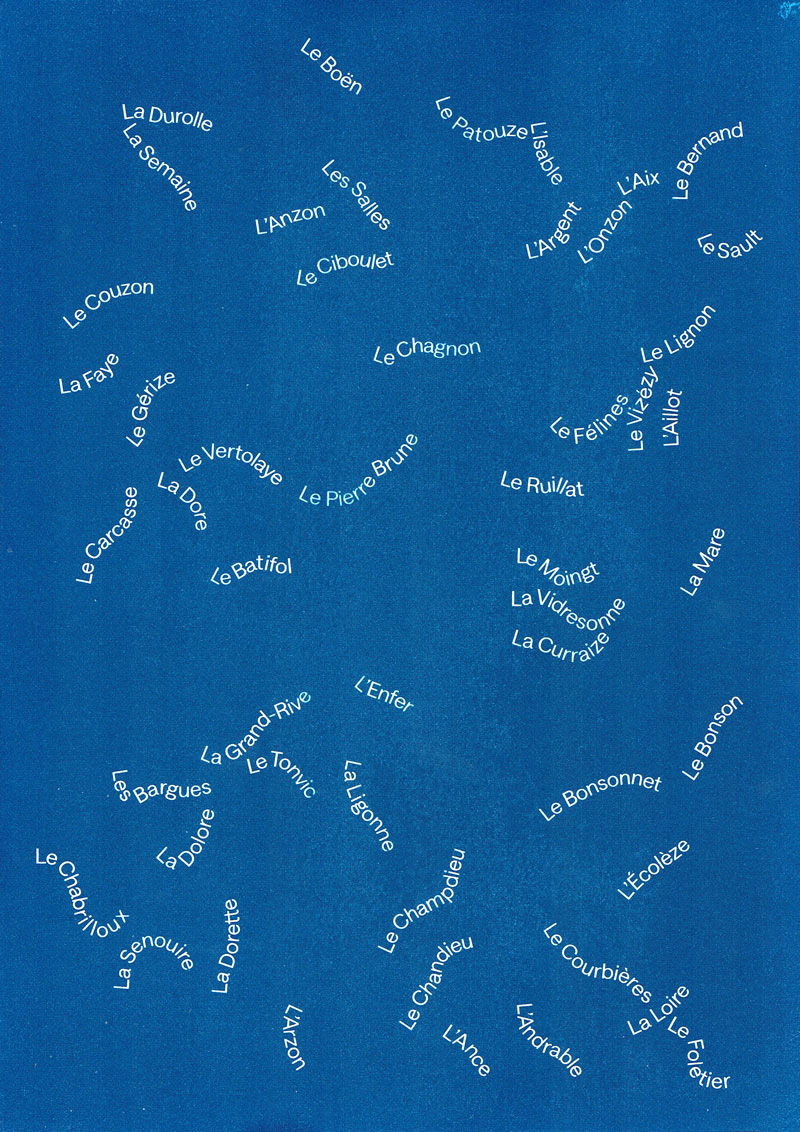 Le Boën
La Durolle
La Semaine
Le Patouze
L'Isable
Le Bernand
Les Salles
L'Aix
L'Anzon
L'Argent
L'Onzon
Le Sault
Le Ciboulet
Le Couzon
Le Chagnon
Le Lignon
La Faye
Le Gérize
Le Félines
Le Vizézy
L'Aillot
Le Vertolaye
Le Pierre Brune
La Dore
Le Ruillat
Le Carcasse
Le Batifol
Le Moingt
La Mare
La Vidresonne
La Curraize
L'Enfer
La Grand-Rive
Le Tonvic
Le Bonson
Les Bargues
La Ligonne
Le Bonsonnet
La Dolore
L'Écolèze
Le Chabrilloux
Le Champdieu
La Senouire
La Dorette
Le Chandieu
Le Courbières
L'Arzon
L'Ance
L'Andrable
La Loire
Le Foletier